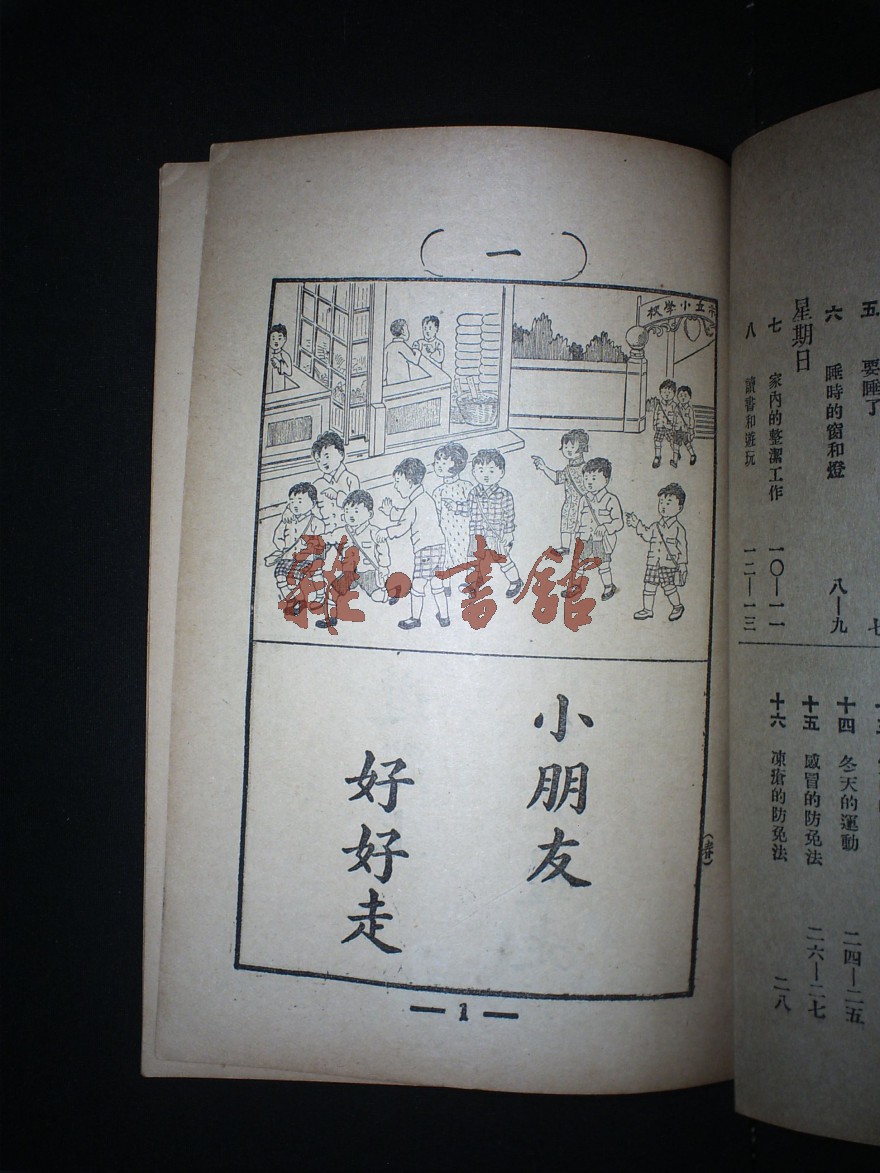 五 要睡了 七
六 睡時的窗和燈 八—九
星期日
七 家內的整潔工作 一〇—一一
八 讀書和遊玩 一二—一三
十四 冬天的運動 二四—二五
十五 感冒的防免法 二六—二七
十六 凍瘡的防免法 二八
(一)
市立小學校
雜·書館
小朋友
好好走
— 1 —